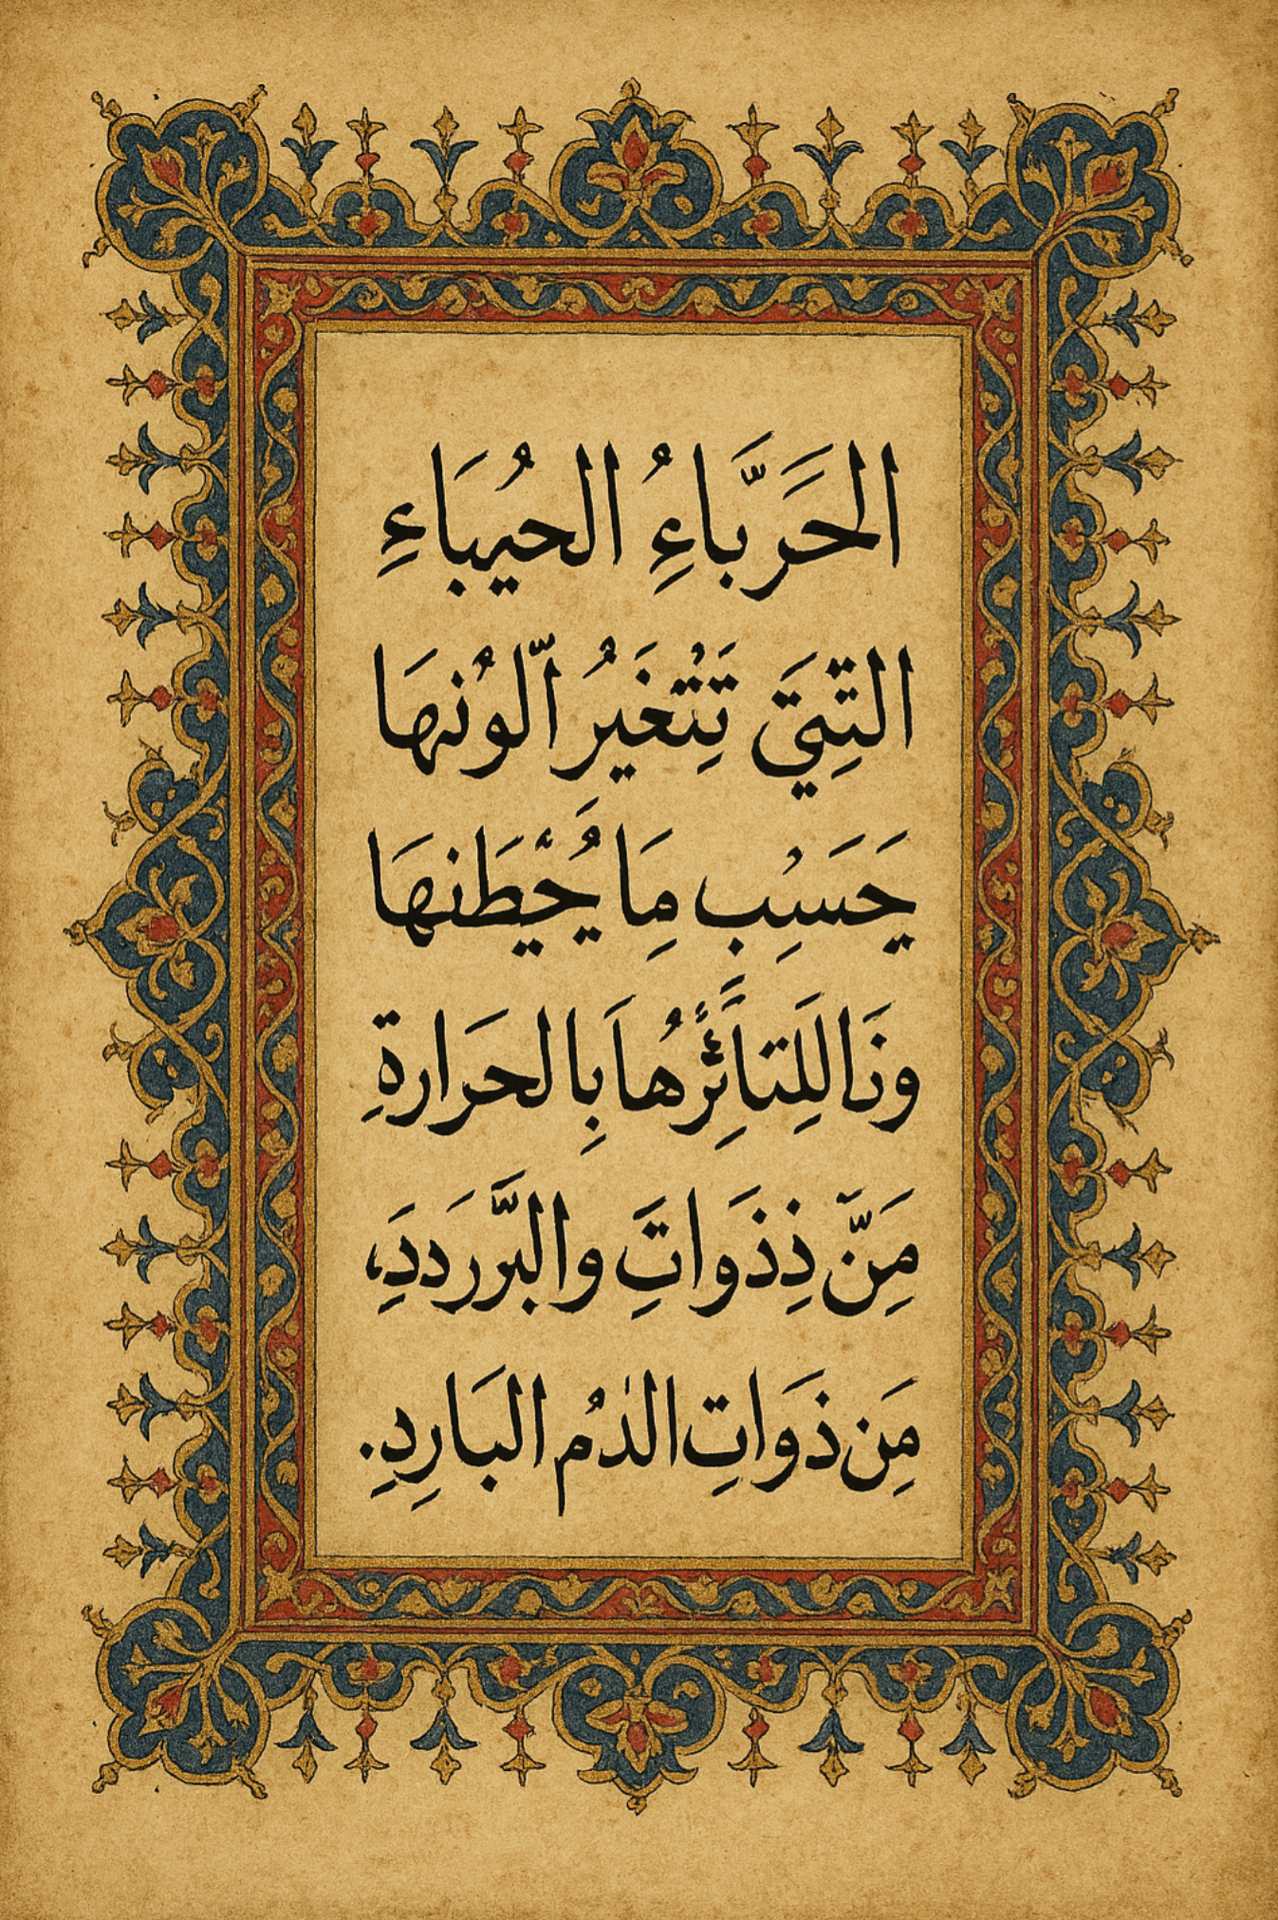 الحَرَّباءُِ الحيُباءِ
التِيَّ تَتْغَيرُ ألّونُها
حَسْبِ مَِا يُحْيَطَنها
وَنَاللِتأَثِرُهَا بِالحَرارةِ
مَِنّ ذِذَواتَِ والبَّرَردَدَِ،
مَِن ذَواتِ الدمُ البَارِدِ.